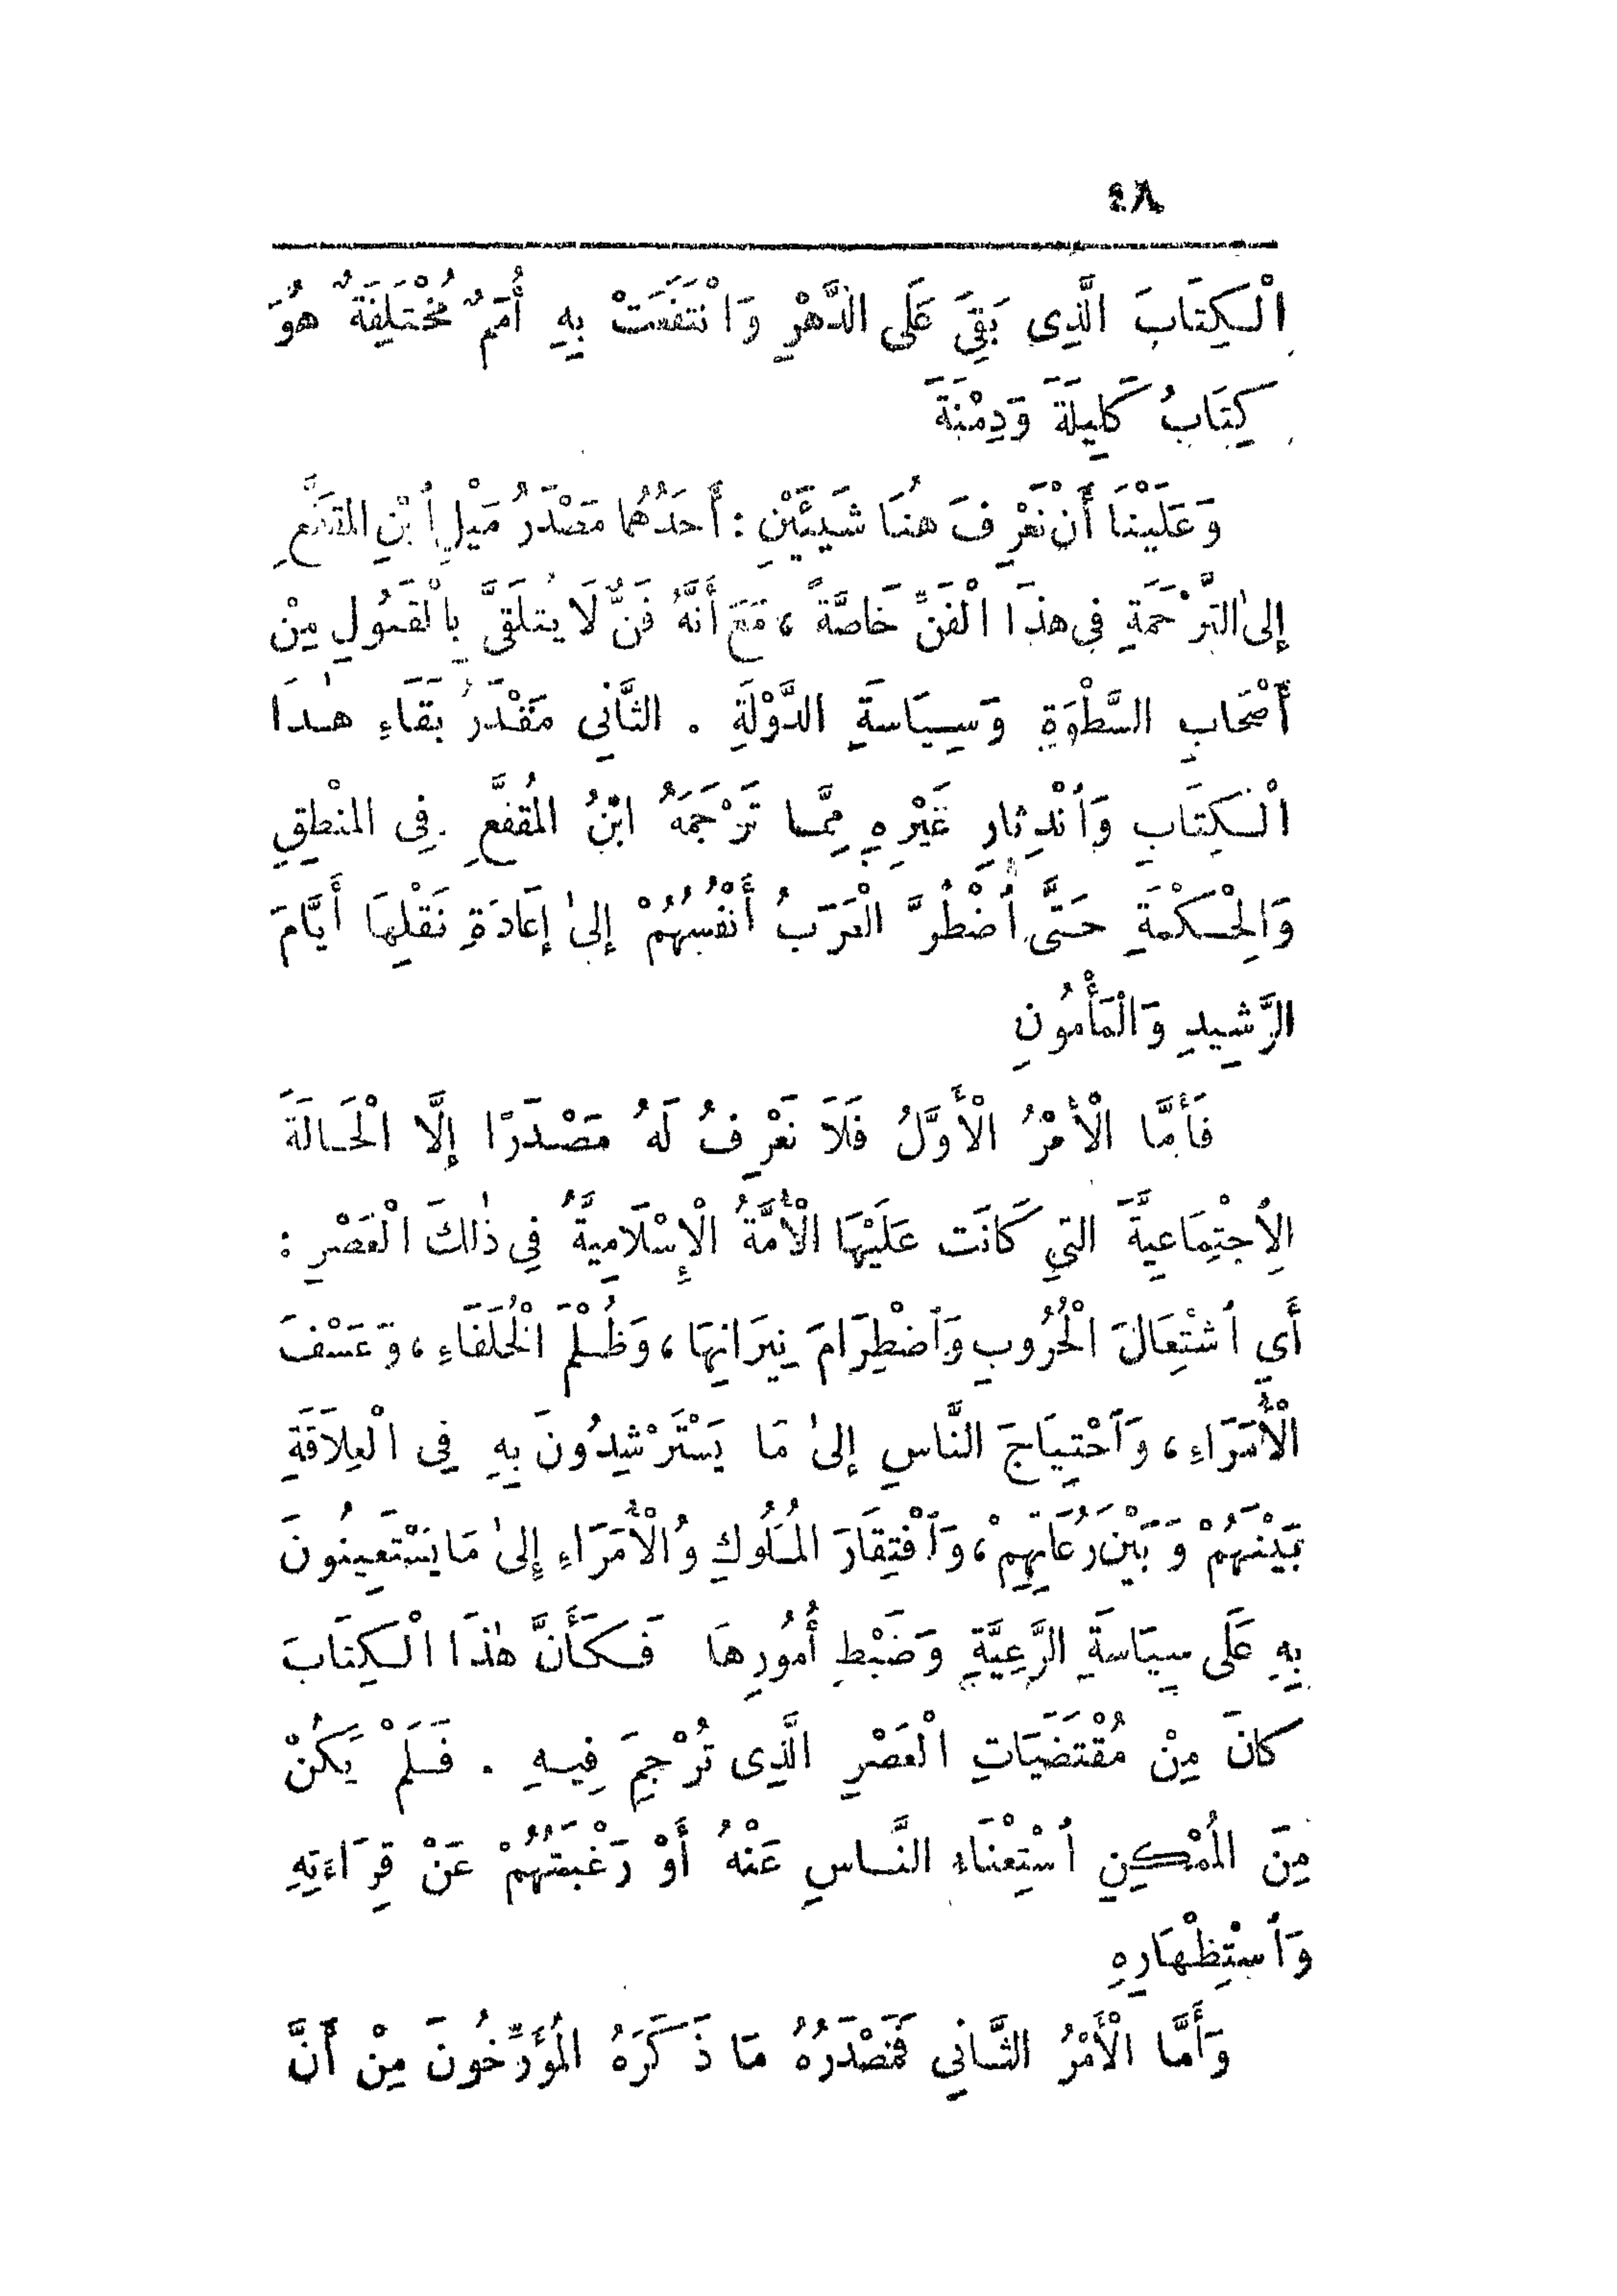 الْكِتَابَ الَّذِى بَقِيَ عَلَى الدَّهْرِ وَانْتَفَعَتْ بِهِ أُمَمٌ مُخْتَلِفَةٌ هُوَ
كِتَابُ كَلِيلَةَ وَدِمْنَةَ
وَعَلَيْنَا أَنْ نَعْرِفَ هُنَا شَيْئَيْنِ : أَحَدُهُمَا مَصْدَرُ مَيْلِ ٱبْنِ المقَفَّعِ
إِلىٰ التَّرْجَمَةِ فِى هذَا الْفَنِّ خَاصَّةً ، مَعَ أَنَّهُ فَنٌّ لَا يُتلَقَّى بِالْقَبُولِ مِنْ
أَصْحَابِ السَّطْوَةِ وَسِيَاسَةِ الدَّوْلَةِ . الثَّانِي مَصْدَرُ بَقَاءِ هٰذَا
الْكِتَابِ وَٱنْدِثَارِ غَيْرِهِ مِمَّا تَرْجَمَهُ ابْنُ المُقَفَّعِ فِى المنْطِقِ
وَالْحِكْمَةِ حَتَّى ٱضْطُرَّ الْعَرَبُ أَنْفُسُهُمْ إِلىٰ إِعَادَةِ نَقْلِهَا أَيَّامَ
الرَّشِيدِ وَالْمَأْمُونِ
فَأَمَّا الْأَمْرُ الْأَوَّلُ فَلَا نَعْرِفُ لَهُ مَصْدَرًا إِلَّا الْحَالَةَ
الِٱجْتِمَاعِيَّةَ التِي كَانَت عَلَيْهَا الْأُمَّةُ الْإِسْلَامِيَّةُ فِي ذٰلكَ الْعَصْرِ :
أَي ٱشْتِعَالَ الْحُرُوبِ وَٱضْطِرَامَ نِيرَانِهَا ، وَظُلْمَ الْخُلَفَاءِ ، وَعَسْفَ
الْأُمَرَاءِ ، وَٱحْتِيَاجَ النَّاسِ إِلىٰ مَا يَسْتَرْشِدُونَ بِهِ فِى الْعِلَاقَةِ
بَيْنَهُمْ وَبَيْنَ رُعَاتِهِمْ ، وَٱفْتِقَارَ المُلُوكِ وَالْأُمَرَاءِ إِلىٰ مَا يَسْتَعِينُونَ
بِهِ عَلَى سِيَاسَةِ الرَّعِيَّةِ وَضَبْطِ أُمُورِهَا فَكَأَنَّ هٰذَا الْكِتَابَ
كَانَ مِنْ مُقْتَضَيَاتِ الْعَصْرِ الَّذِى تُرْجِمَ فِيهِ . فَلَمْ يَكُنْ
مِنَ المُمْكِنِ ٱسْتِغْنَاءِ النَّاسِ عَنْهُ أَوْ رَغْبَتُهُمْ عَنْ قِرَاءَتِهِ
وَٱسْتِظْهَارِهِ
وَأَمَّا الْأَمْرُ الثَّانِي فَمَصْدَرُهُ مَا ذَكَرَهُ المُؤَرِّخُونَ مِنْ أَنَّ